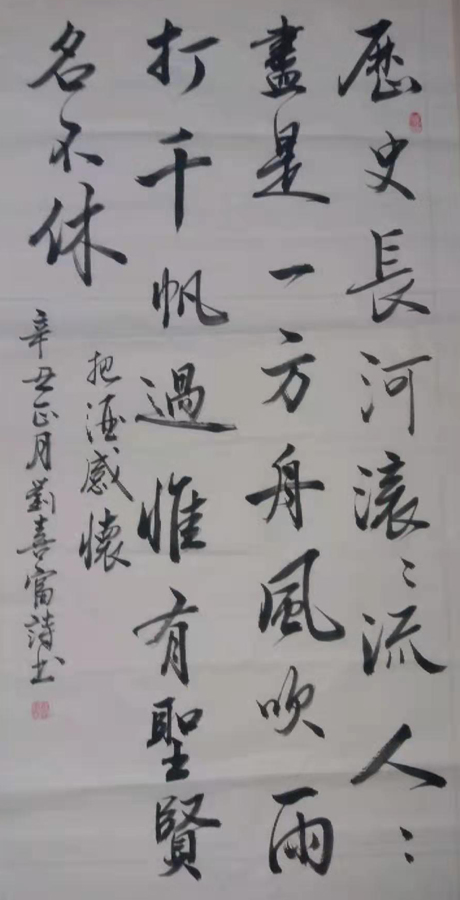 歷史長河滚〻流人〻
盡是一方舟風吹雨
打千帆過惟有聖賢
名不休
把酒感懷
辛丑正月劉喜富詩书